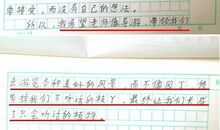 要接受，而没有自己的想法。
所以，我希望老师像导游，带领我们
去游览各种美好的风景，而不像园丁，修
剪掉我们不听话的枝丫，最终让我们变成
了只会听话的植物